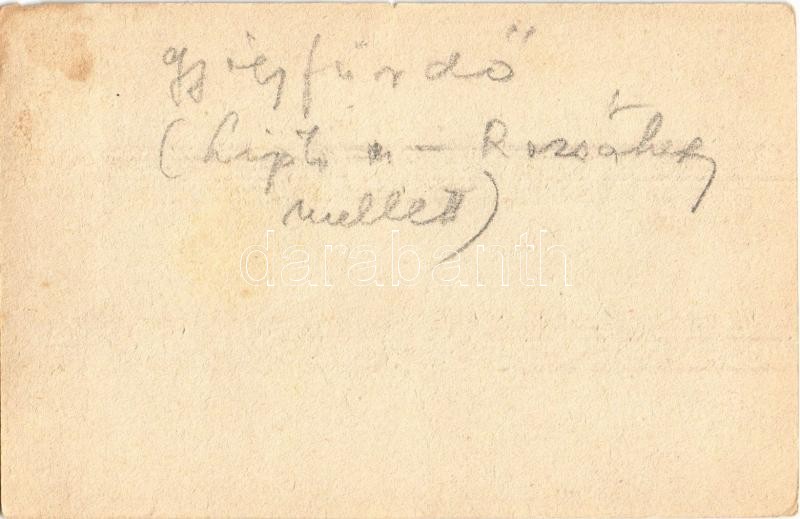 gyógyfürdő
(Liptó m – Rózsahegy
mellett)
darabanth